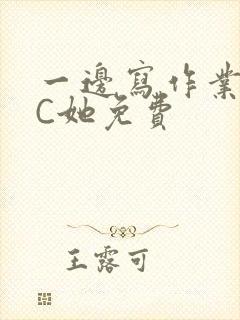 一邊寫作業
C她免費
王露可